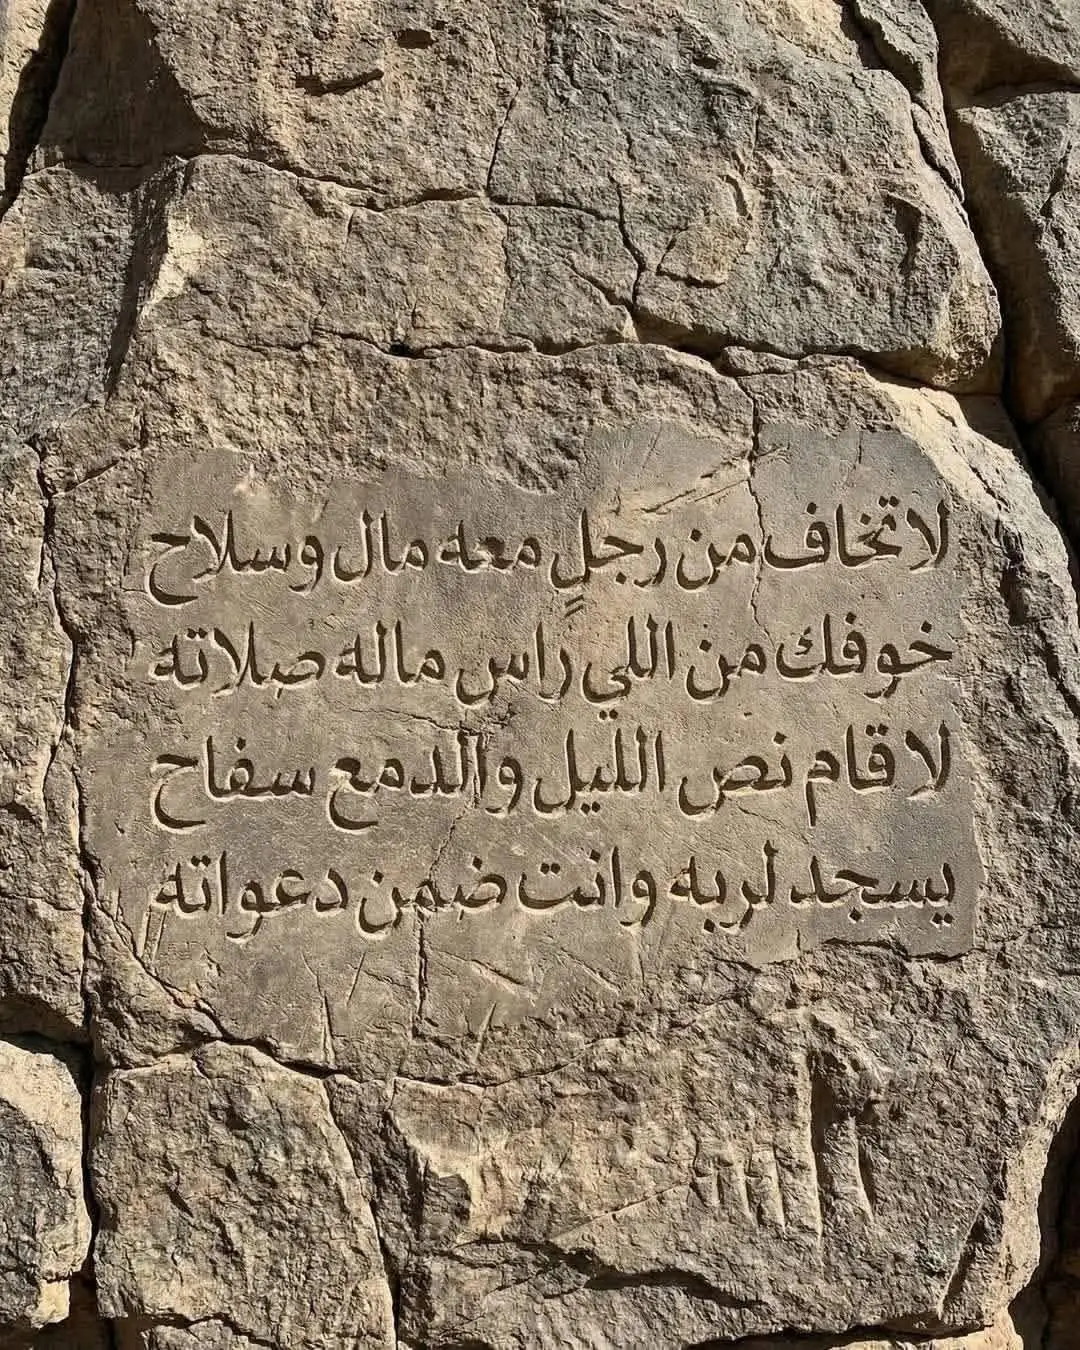 لا تخاف من رجلٍ معه مال وسلاح
خوفك من اللي راس ماله صلاته
لا قام نص الليل والدمع سفاح
يسجد لربه وانت ضمن دعواته